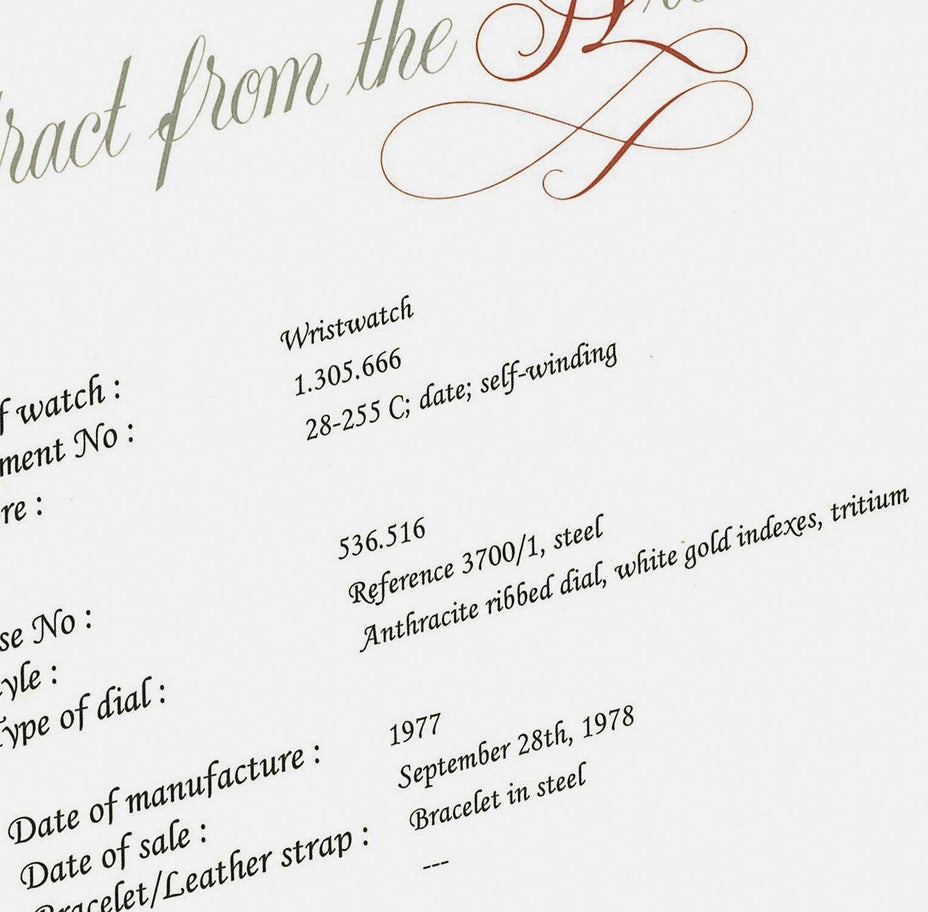 ract from the A
f watch : Wristwatch
ment No : 1.305.666
re : 28-255 C; date; self-winding
se No : 536.516
yle : Reference 3700/1, steel
Type of dial : Anthracite ribbed dial, white gold indexes, tritium
Date of manufacture : 1977
Date of sale : September 28th, 1978
Bracelet/Leather strap : Bracelet in steel
---